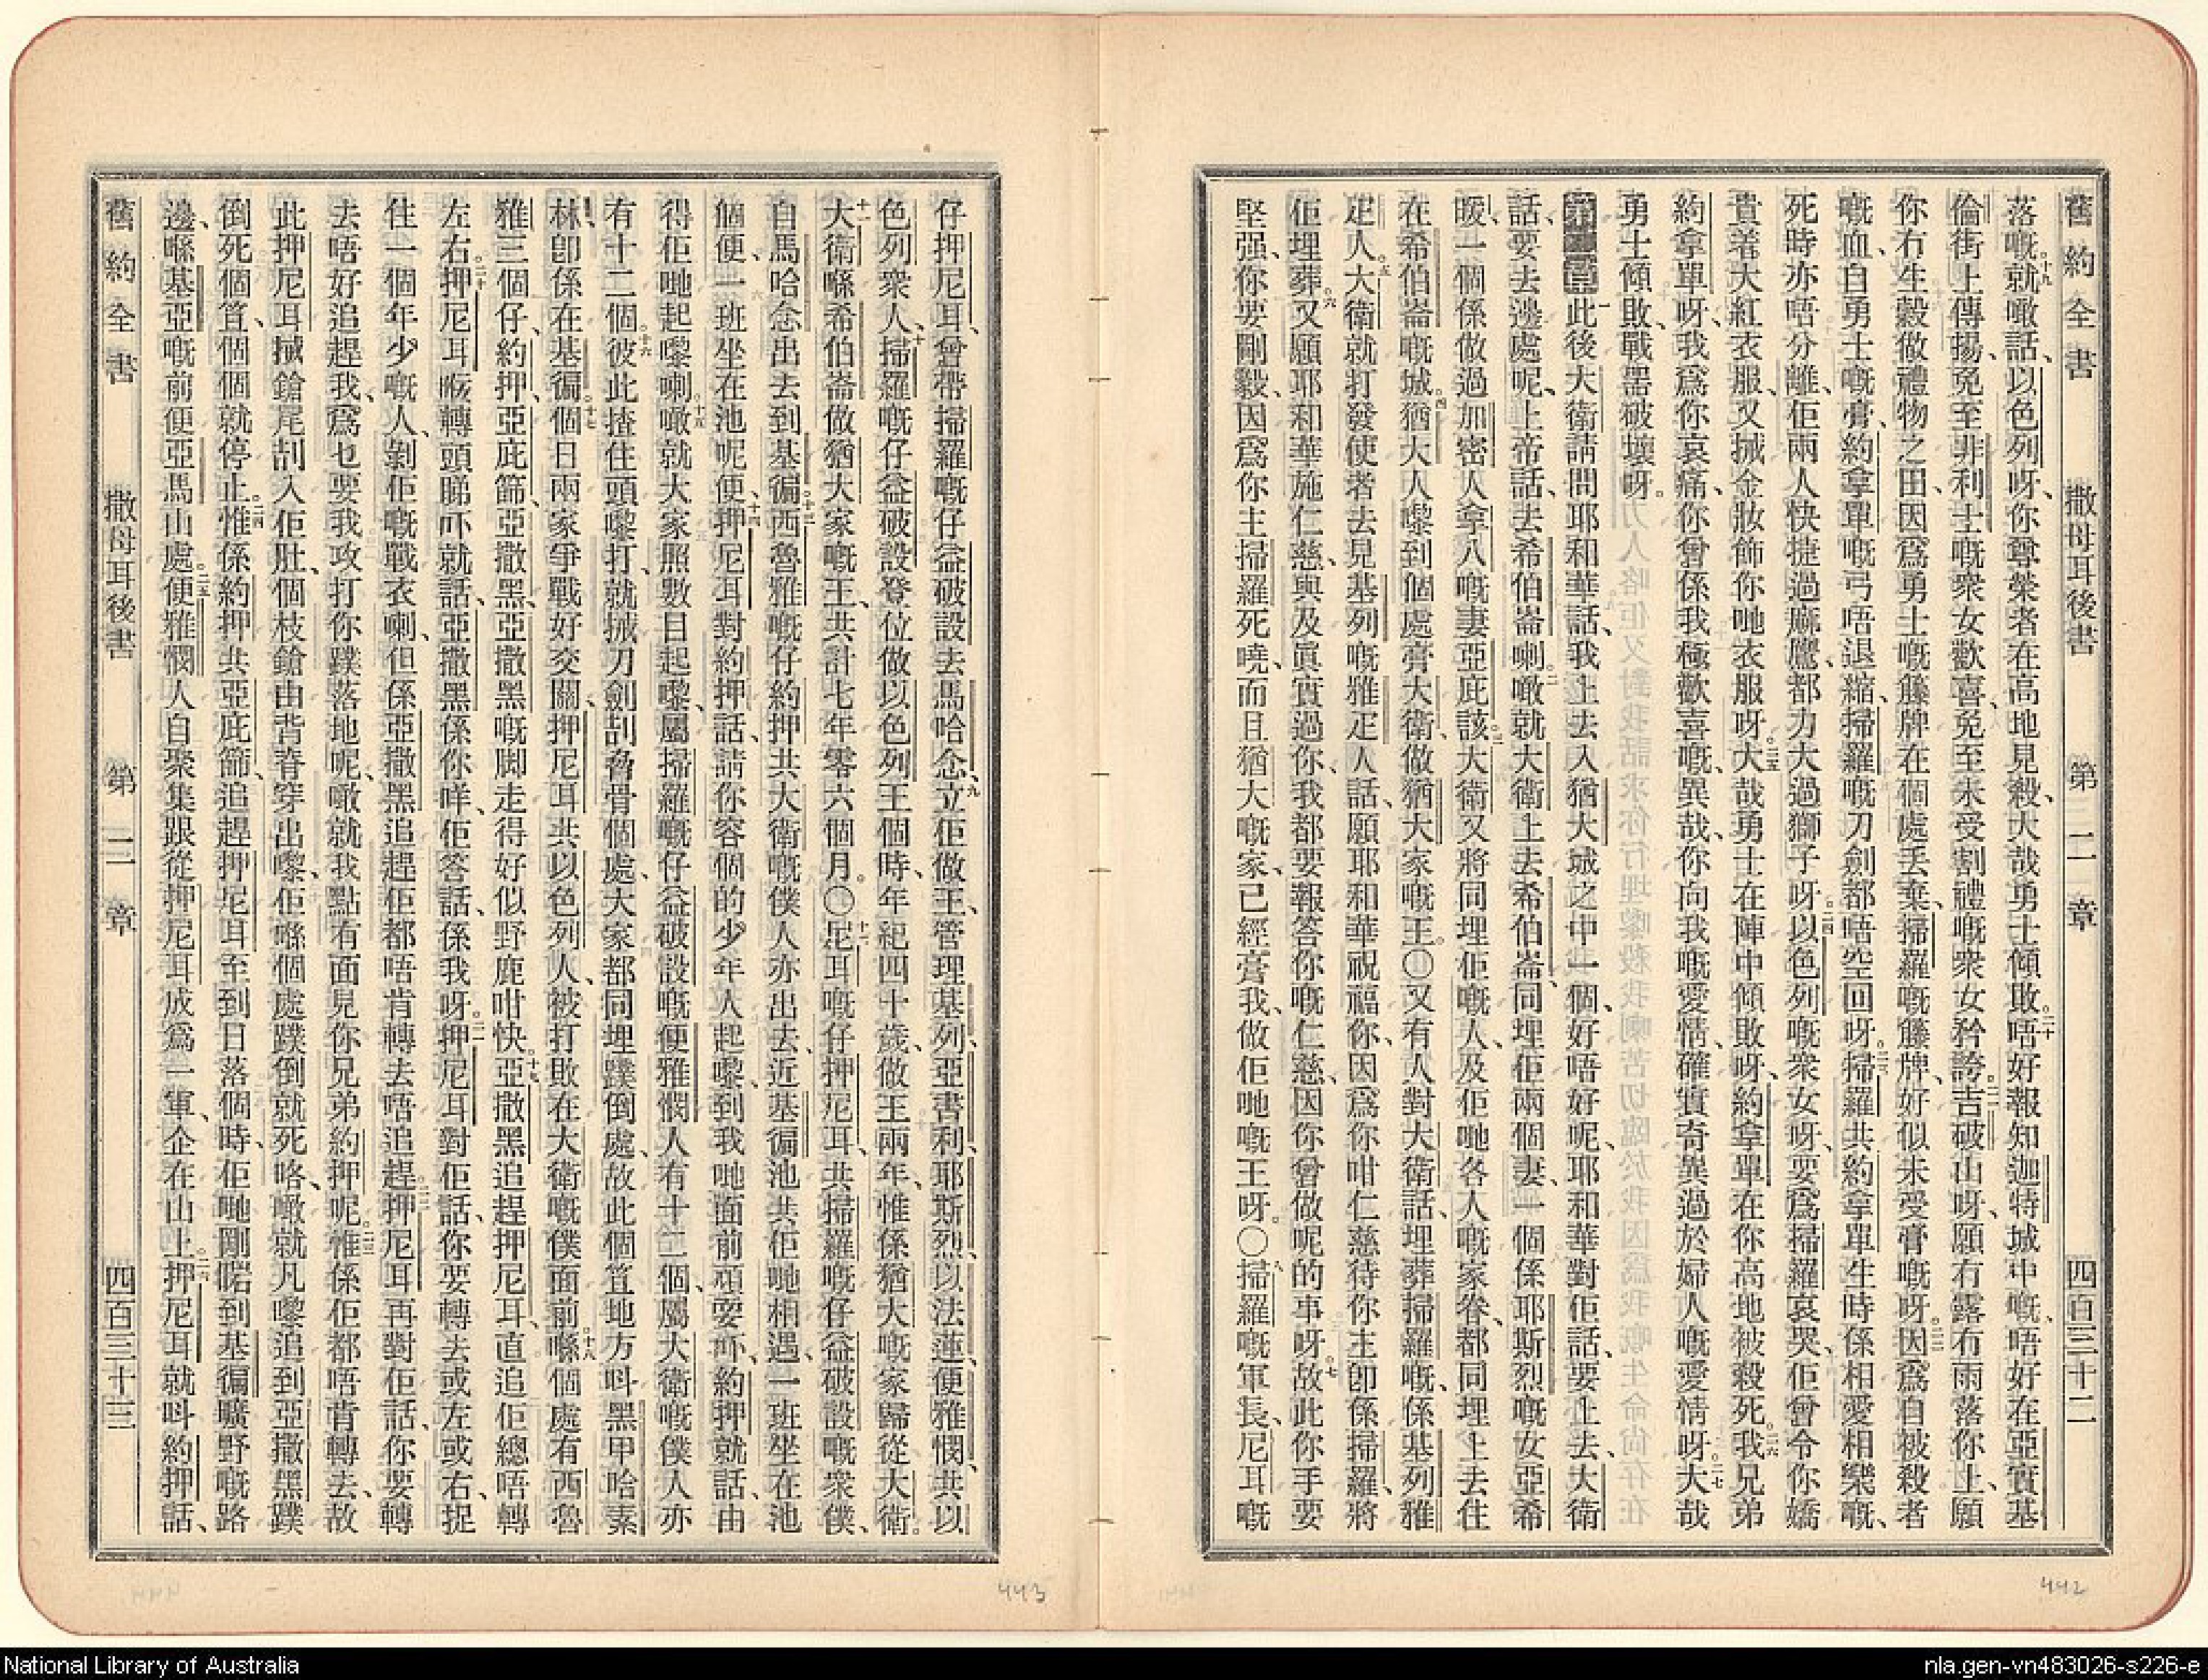 舊約全書　撒母耳後書　第二章　四百三十二
落嘅、就噉話、以色列呀、你尊榮者在高地見殺、大哉勇士傾敗。唔好報知迦特城中嘅、唔好在亞實基
倫街上傳揚、免至非利士嘅衆女歡喜、免至未受割禮嘅衆女矜誇。吉破山呀、願冇露冇雨落你上、願
你冇生穀做禮物之田、因爲勇士嘅籐牌在個處丢棄、掃羅嘅籐牌、好似未受膏嘅呀。因爲自被殺者
嘅血、自勇士嘅膏、約拿單嘅弓唔退縮、掃羅嘅刀劍都唔空回呀。掃羅共約拿單生時係相愛相樂嘅、
死時亦唔分離、佢兩人快捷過麻鷹、都力大過獅子呀。以色列嘅衆女呀、要爲掃羅哀哭、佢曾令你嬌
貴着大紅衣服、又搣金妝飾你哋衣服呀。大哉勇士在陣中傾敗呀、約拿單在你高地被殺死。我兄弟
約拿單呀、我爲你哀痛、你曾係我極歡喜嘅、異哉、你向我嘅愛情、確實奇異過於婦人嘅愛情呀。大哉
勇士傾敗、戰器破壞呀。
第二章 此後大衛請問耶和華話、我上去入猶大城之中一個、好唔好呢、耶和華對佢話、要上去、大衛
話、要去邊處呢、上帝話、去希伯崙喇。噉就大衛上去希伯崙、同埋佢兩個妻、一個係耶斯烈嘅女亞希
暖、一個係做過加密人拿八嘅妻亞庇該。大衛又將同埋佢嘅人、及佢哋各人嘅家眷、都同埋上去住
在希伯崙嘅城。猶大人嚟到個處膏大衛、做猶大家嘅王。〇又有人對大衛話、埋葬掃羅嘅、係基列雅
疋人。大衛就打發使者去見基列嘅雅疋人話、願耶和華祝福你、因爲你咁仁慈待你主卽係掃羅、將
佢埋葬。又願耶和華施仁慈、與及眞實過你、我都要報答你嘅仁慈、因你曾做呢的事呀。故此你手要
堅强、你要剛毅、因爲你主掃羅死曉、而且猶大嘅家、已經膏我、做佢哋嘅王呀。〇掃羅嘅軍長、尼耳嘅
仔押尼耳、曾帶掃羅嘅仔益破設去馬哈念、立佢做王、管理基列、亞書利、耶斯烈、以法蓮、便雅憫、共以
色列衆人、掃羅嘅仔益破設登位做以色列王個時、年紀四十歲、做王兩年、惟係猶大嘅家歸從大衛。
大衛喺希伯崙做猶大家嘅王、共計七年零六個月。〇尼耳嘅仔押尼耳、共掃羅嘅仔益破設嘅衆僕、
自馬哈念出去到基徧。西魯雅嘅仔約押、共大衛嘅僕人亦出去、近基徧池共佢哋相遇、一班坐在池
個便、一班坐在池呢便、押尼耳對約押話、請你容個的少年人起嚟、到我哋面前頑耍吓、約押就話、由
得佢哋起嚟喇。噉就大家照數目起嚟、屬掃羅嘅仔益破設嘅便雅憫人有十二個、屬大衛嘅僕人亦
有十二個。彼此揸住頭嚟打、就搣刀劍剳脅骨個處、大家都同埋蹼倒處、故此個笪地方呌黑甲哈素
林、卽係在基徧。個日兩家爭戰好交關、押尼耳共以色列人、被打敗在大衛嘅僕面前。喺個處有西魯
雅三個仔、約押、亞庇篩、亞撒黑、亞撒黑嘅脚走得好似野鹿咁快。亞撒黑追趕押尼耳、直追佢總唔轉
左右。押尼耳㕭轉頭睇吓就話、亞撒黑係你咩、佢答話、係我呀。押尼耳對佢話、你要轉去或左或右、捉
住一個年少嘅人、剝佢嘅戰衣喇、但係亞撒黑追趕佢都唔肯轉去唔追趕。押尼耳再對佢話、你要轉
去唔好追趕我、爲乜要我攻打你蹼落地呢、噉就我點有面見你兄弟約押呢。惟係佢都唔肯轉去、故
此押尼耳搣鎗尾剳入佢肚、個枝鎗由背脊穿出嚟、佢喺個處蹼倒就死咯、噉就凡嚟追到亞撒黑蹼
倒死個笪、個個就停止。惟係約押共亞庇篩、追趕押尼耳至到日落個時、佢哋剛啱到基徧曠野嘅路
邊、喺基亞嘅前便亞馬山處。便雅憫人自聚集跟從押尼耳成爲一軍、企在山上。押尼耳就呌約押話、
舊約全書　撒母耳後書　第二章　四百三十三
443
442
National Library of Australia
nla.gen-vn483026-s226-e